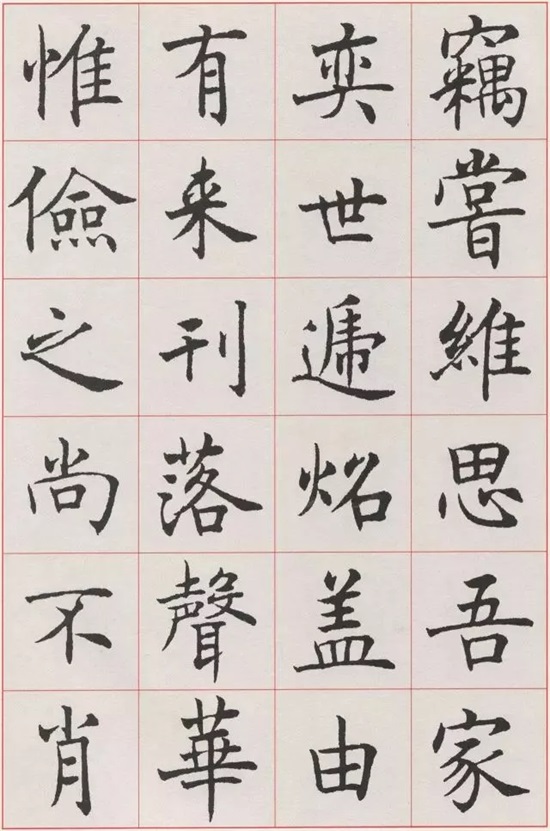 竊嘗維思吾家
奕世遞焰盖由
有来刊落聲華
惟儉之尚不肖